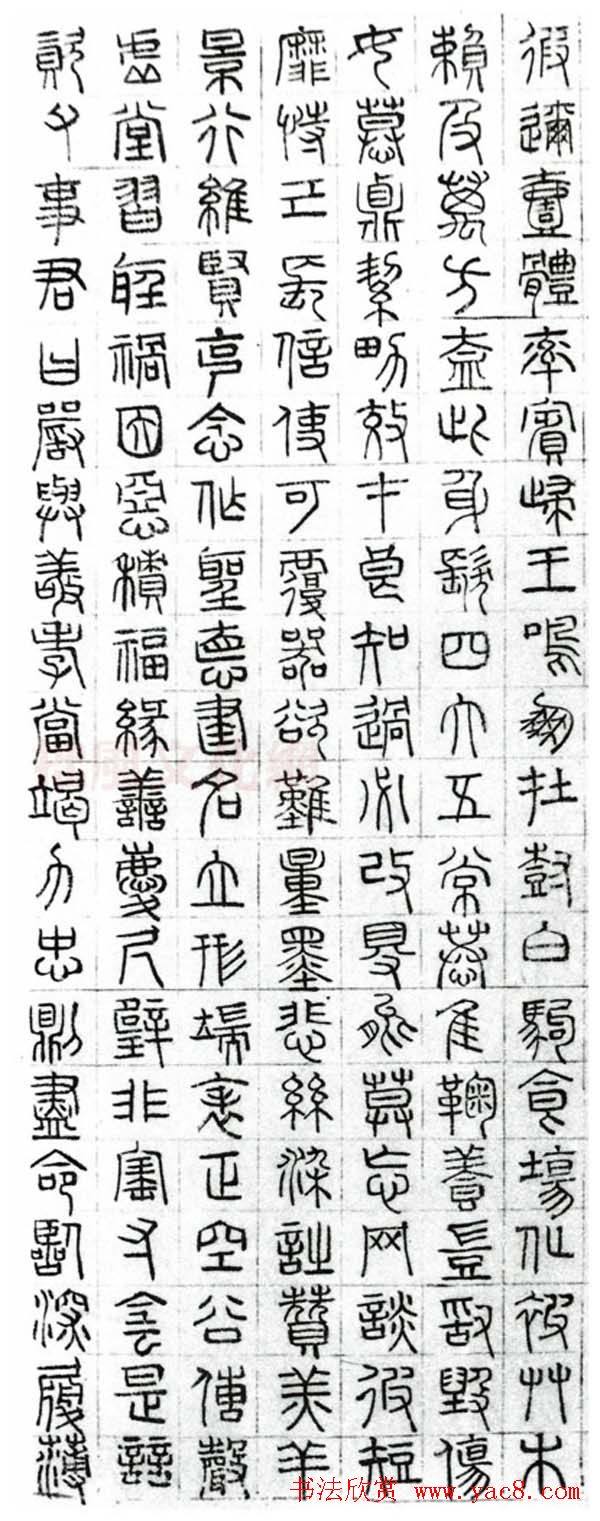 遐邇壹體率賓歸王鳴鳳在樹白駒食場化被艸木
賴及萬方蓋此身髮四大五常恭惟鞠養豈敢毀傷
女慕貞絜男效才良知過必改得能莫忘罔談彼短
靡恃己長信使可覆器欲難量墨悲絲染詩贊羔羊
景行維賢克念作聖德建名立形端表正空谷傳聲
虛堂習聽禍因惡積福緣善慶尺璧非寶寸陰是競
資父事君曰嚴與敬孝當竭力忠則盡命臨深履薄
书法欣赏 www.yac8.com